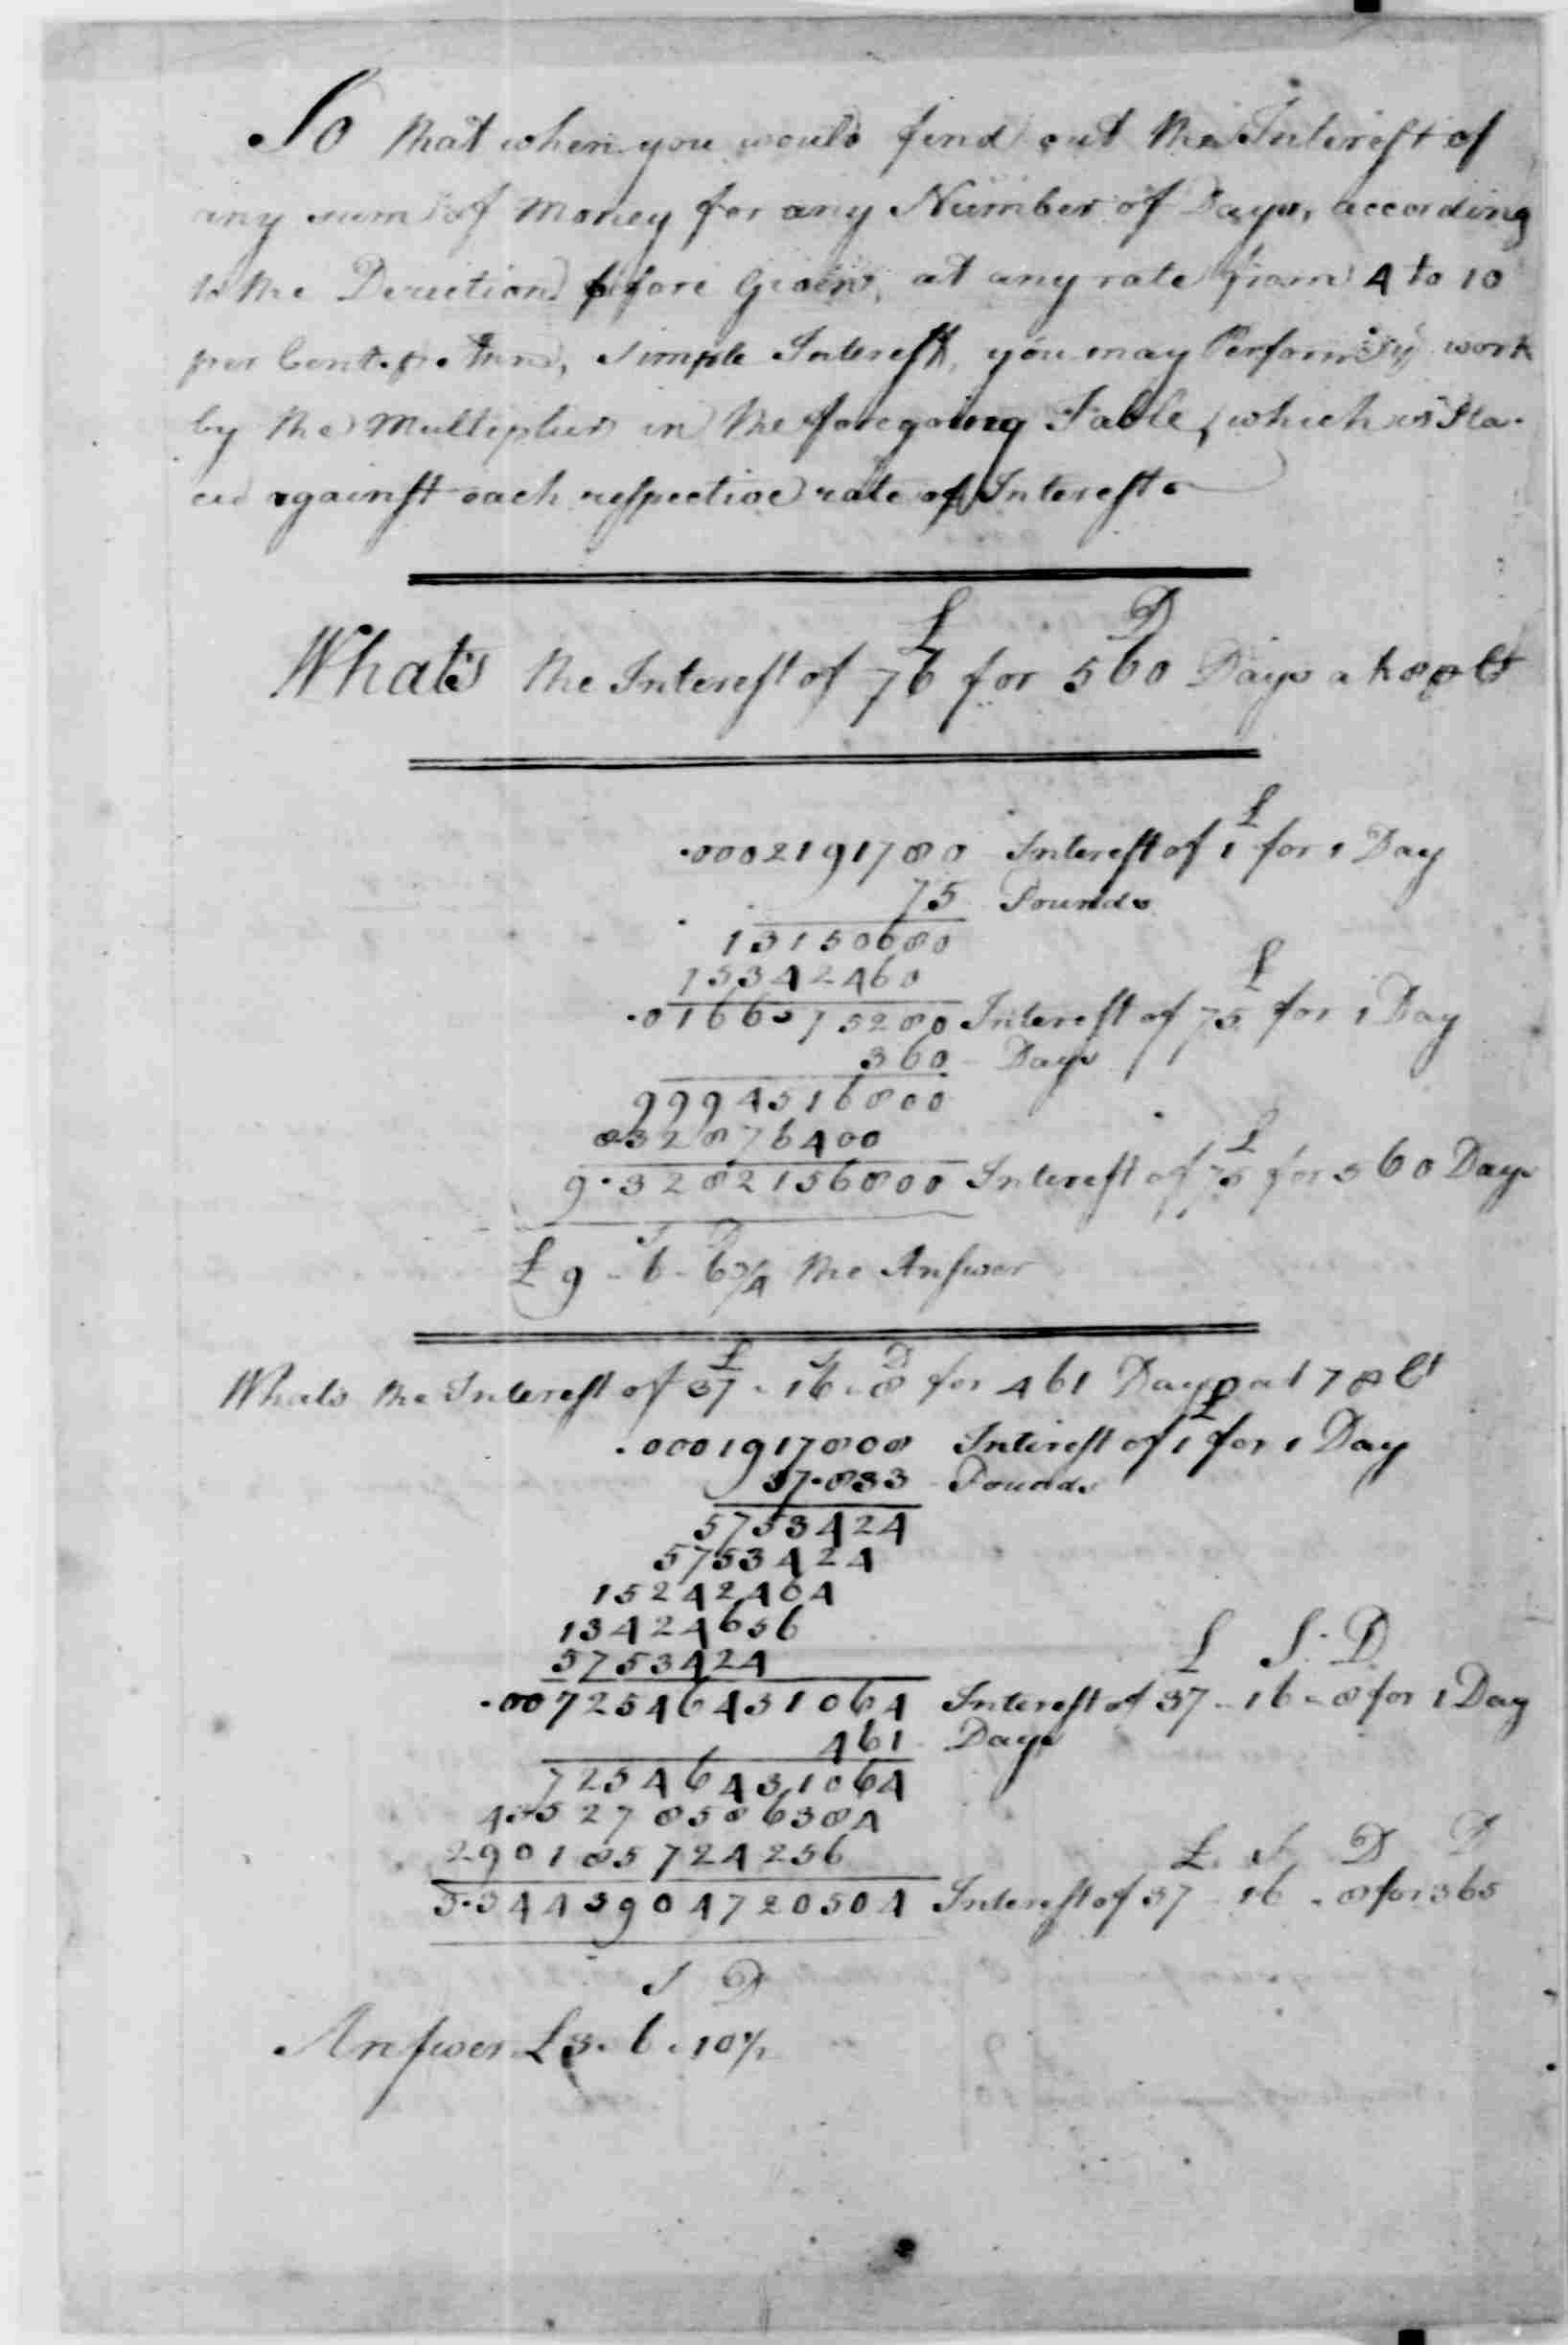 So that when you would find out the Interest of
any sum of Money for any Number of Days, according
to the Derection before Given, at any rate from 4 to 10
per Cent. pr. Ann, simple Interest, you may Perform yr work
by the Multiplier in the foregoing Table, which is Pla-
ced against each respective rate of Interest
£ D
Whats the Interest of 76 for 560 Days at 8 p Ct
£
.0002191780 Interest of 1 for 1 Day
75 Pounds
13150680
15342460
£
.0166375280 Interest of 75 for 1 Day
360 Days
9994516800
832876400
£
9.3282156800 Interest of 75 for 560 Days
S D
£ 9 - 6 - 6 3/4 the Answer
£ S D
Whats the Interest of 37 - 16 - 8 for 461 Days at 7 p Ct
£
.0001917808 Interest of 1 for 1 Day
37.833 Pounds
5753424
5753424
15242464
13424656
5753424
£ S. D
.00725464431064 Interest of 37 - 16 - 8 for 1 Day
461 Days
725464431064
435278586384
2901857724256
£ S D D
3.3443904720504 Interest of 37 - 16 - 8 for 365
S D
Answer £ 3. 6. 10